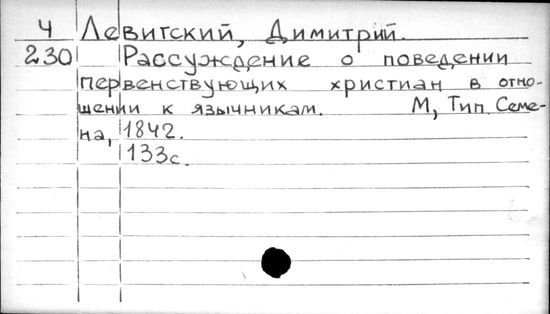 Ч Левитский, Димитрий.
230 Рассуждение о поведении
первенствующих христиан в отно-
шении к язычникам. М, Тип. Семе-
на, 1842.
133с.